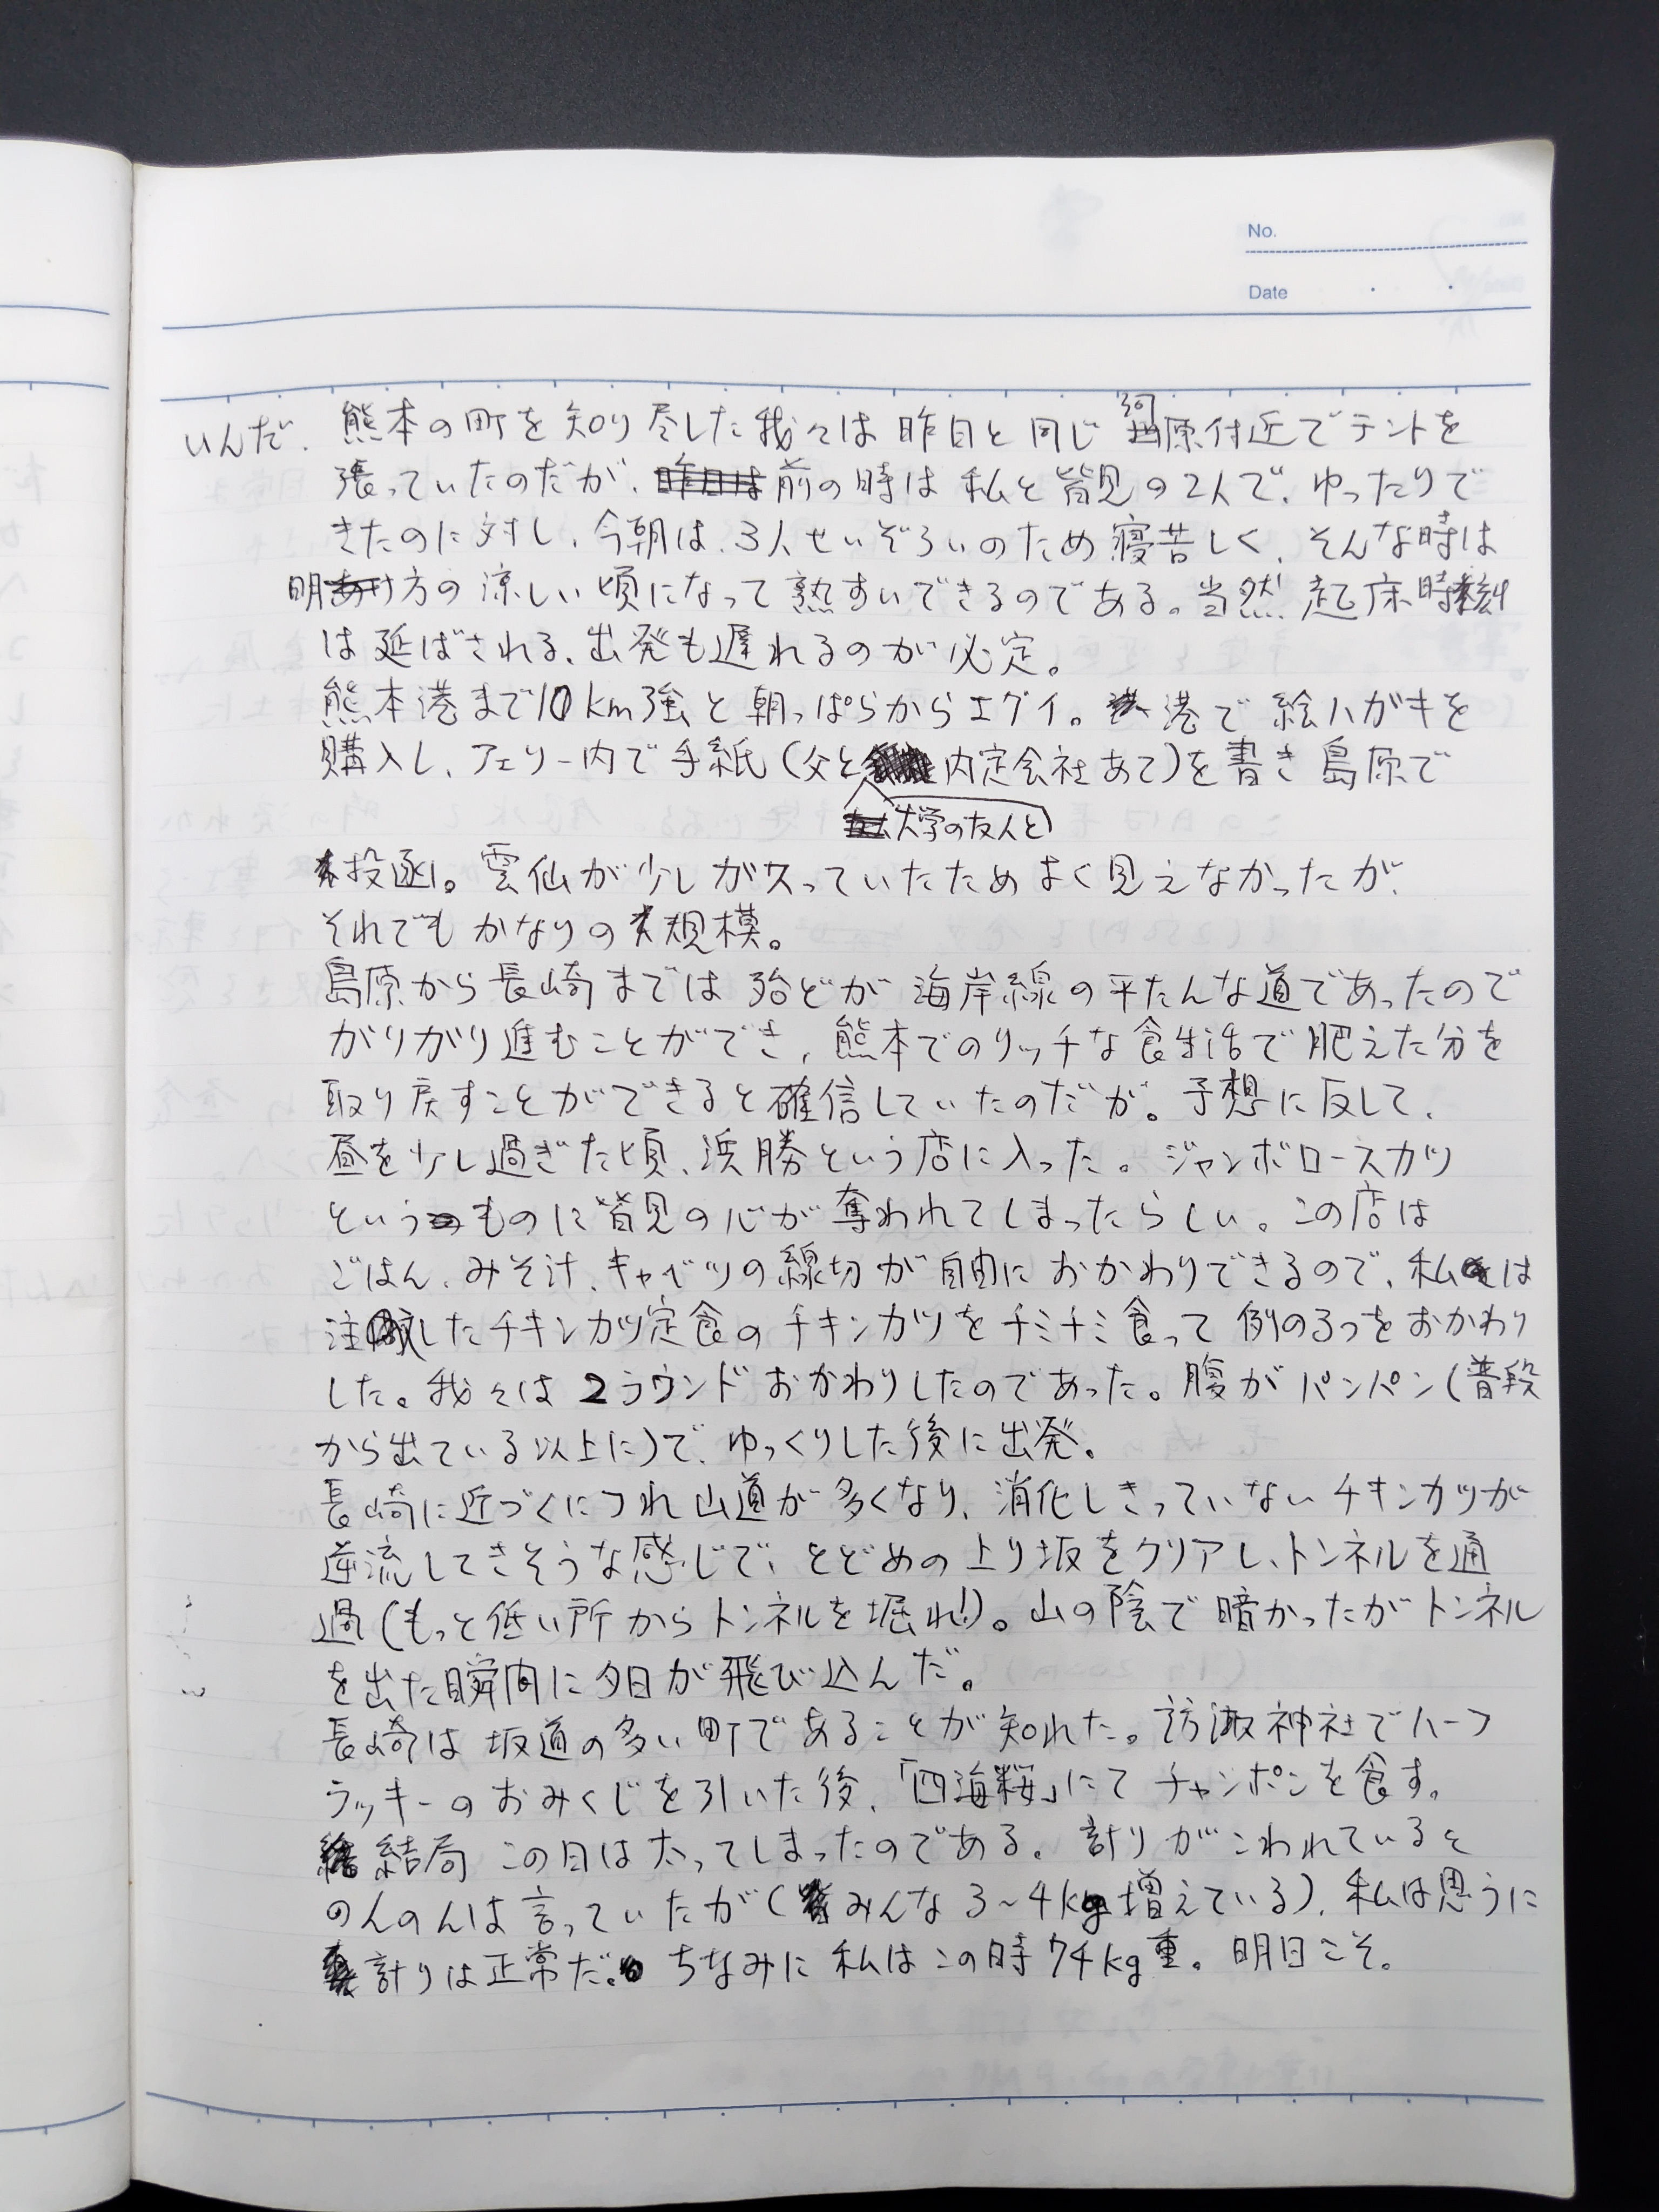 No.
Date
いんだ.
熊本の町を知り尽した我々は昨日と同じ河原付近でテントを
張っていたのだが、前の時は私と皆見の2人で、ゆったりで
きたのに対し、今朝は、3人せいぞろいのため寝苦しく、そんな時は
明け方の涼しい頃になって熟すいできるのである。当然起床時刻
は延ばされる、出発も遅れるのが必定。
熊本港まで10km強と朝っぱらからエグイ。港で絵ハガキを
購入し、フェリー内で手紙(父と内定会社あて)を書き島原で
大学の友人と
投函。雲仙が少しガスっていたためよく見えなかったが、
それでもかなりの規模。
島原から長崎までは殆どが海岸線の平たんな道であったので
がりがり進むことができ、熊本でのリッチな食生活で肥えた分を
取り戻すことができると確信していたのだが。予想に反して、
昼を少し過ぎた頃、浜勝という店に入った。ジャンボロースカツ
というものに皆見の心が奪われてしまったらしい。この店は
ごはん、みそ汁、キャベツの線切が自由におかわりできるので、私は
注文したチキンカツ定食のチキンカツをチミチミ食って例の3つをおかわり
した。我々は2ラウンドおかわりしたのであった。腹がパンパン(普段
から出ている以上に)で、ゆっくりした後に出発。
長崎に近づくにつれ山道が多くなり、消化しきっていないチキンカツが
逆流してきそうな感じで、とどめの上り坂をクリアし、トンネルを通
過(もっと低い所からトンネルを堀れ!)。山の陰で暗かったがトンネル
を出た瞬間に夕日が飛び込んだ。
長崎は坂道の多い町であることが知れた。諏訪神社でハーフ
ラッキーのおみくじを引いた後、「四海桜」にてチャンポンを食す。
結局この日は太ってしまったのである。計りがこわれていると
のんのんは言っていたが(みんな3〜4kg増えている)、私は思うに
計りは正常だ。ちなみに私はこの時74kg重。明日こそ。